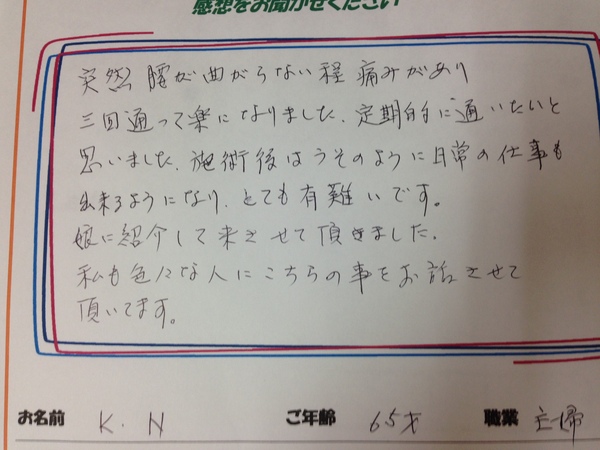 感想をお聞かせください
突然 腰が曲がらない程 痛みがあり
三回通って楽になりました。定期的に通いたいと
思いました。施術後はうそのように日常の仕事も
出来るようになり、とても有難いです。
娘に紹介して来させて頂きました。
私も色々な人にこちらの事をお話させて
頂いてます。
お名前 K.N ご年齢 65才 職業 主婦